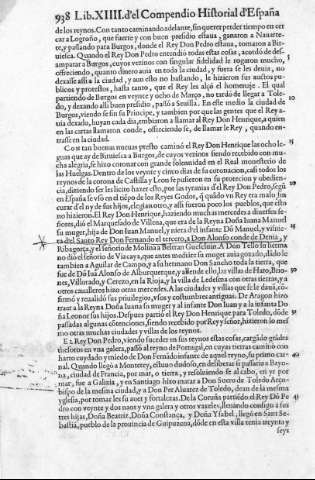 938 Lib. XIIII. d'el Compendio Historial d'España
de los reynos. Con tanto caminando adelante, sin querer perder tiempo en cer
car a Logroño, que fuerte y con buen presidio estaua, ganaron a Nauarre-
te, y passando para Burgos, donde el Rey Don Pedro estaua, tomaron a Bir
uiesca. Quando el Rey Don Pedro entendió todas estas cosas, acordó de des-
amparar a Burgos, cuyos vezinos con singular fidelidad le rogaron mucho,
ofreciendo, quanto dinero auia en toda la ciudad, y fuera se les denia, no
dexasse assi a la ciudad, y aun esto no bastando, le hizieron sus autos pu-
blicos y protestos, hasta tanto, que el Rey les alçó el homenaje. El qual
partiendo de Burgos en veynte y ocho de Março, no tardó de llegar a Tole-
do, y dexando alli buen presidio, passó a Seuilla. En este medio la ciudad de
Burgos, viendo se sin su Principe, y tambien por que las gentes que el Rey a-
uia dexado, huyan cada dia, embiaron a llamar al Rey Don Henrique, a quien
en las cartas llamaron conde, offreciendo se, de llamar le Rey, quando en-
trasse en la ciudad.
Con tan buenas nueuas presto caminó el Rey Don Henrique las ocho le-
guas que ay de Biruiesca a Burgos, de cuyos vezinos siendo recebido con mu-
cha alegria, se hizo coronar con grande solemnidad en el Real monasterio de
las Huelgas. Dentro de los veynte y cinco dias de su coronacion, casi todos los
reynos de la corona de Castilla y Leon se pusieron en su proteccion y obedien-
cia, diziendo ser les licito hazer esto, por las tyranias d'el Rey Don Pedro, segū
en España se vsó en el tiẽpo de los Reyes Godos, q̃ quãdo vn Rey era malo, sin
curar d'el ny de sus hijos, elegian otro, y assi fueron pocos los pueblos, que esto
no hizieron. El Rey Don Henrique, haziendo muchas mercedes a diuersos se-
ñores, dió el Marquesado de Villena, que era de la Reyna Doña Iuana Manuel
su muger, hija de Don Iuan Manuel, y nieta d'el infante Dõ Manuel, y visnie-
ta del Santo Rey Don Fernando el tercero, a Don Alonso conde de Denia, y
Ribagorça, y el señorio de Molina a Beltran Guesclin. A Don Tello su hermano
dió el señorio de Vizcaya, que antes
tambien a Aguilar de Campoo, y a su hermano Don Sancho toda la tierra, que
fue de Dõ Iuã Alonso de Alburquerque, y allende ello, las villas de Haro, Brio-
nes, Vilforado, y Cerezo, en la Rioja, y la villa de Ledesma con otras tierras, y a
otros caualleros hizo otras mercedes. A las ciudades y villas que se le dauã, cõ-
firmó y reualidó sus priuilegios, vsos y costumbres antiguas. De Aragon hizo
traer a la Reyna Doña Iuana su muger y al infante Don Iuan y a la infanta Do
ña Leonor sus hijos. Despues partió el Rey Don Henrique para Toledo, dõde
passadas algunas cotenciones, siendo recebido por Rey y señor, hizieron lo mes
mo otras muchas ciudades y villas de los reynos.
El Rey Don Pedro, viendo suceder en sus reynos estas cosas, cargãdo grãdes
thesoros en vna galera, passó al reyno de Portugal, en cuyas tierras caminó con
harto cuydado y miedo de Don Fernãdo infante de aquel reyno, su primo car-
nal. Quando llegó a Monterrey, estuuo dudoso, en deliberar si passaria a Bayo-
na, ciudad de Francia, por mar, o tierra, y resoluiendo se al cabo, en yr por
mar, fue a Galizia, y en Santiago hizo matar a Don Suero de Toledo Arço-
bispo de la mesma ciudad, y a Don Per Aluarez de Toledo, dean de la mesma
yglesia, por tomar les su auer y fortalezas. De la Coruña partido el Rey Dõ Pe
dro con veynte y dos naos y vna galera y otros vaxeles, lleuando consigo a sus
tres hijas, Doña Beatriz, Doña Constança, y Doña Ysabel, llegó en Sant Seba-
stian, pueblo de la prouincia de Guipuzcoa, dõde en esta villa tenia treynta y
seys